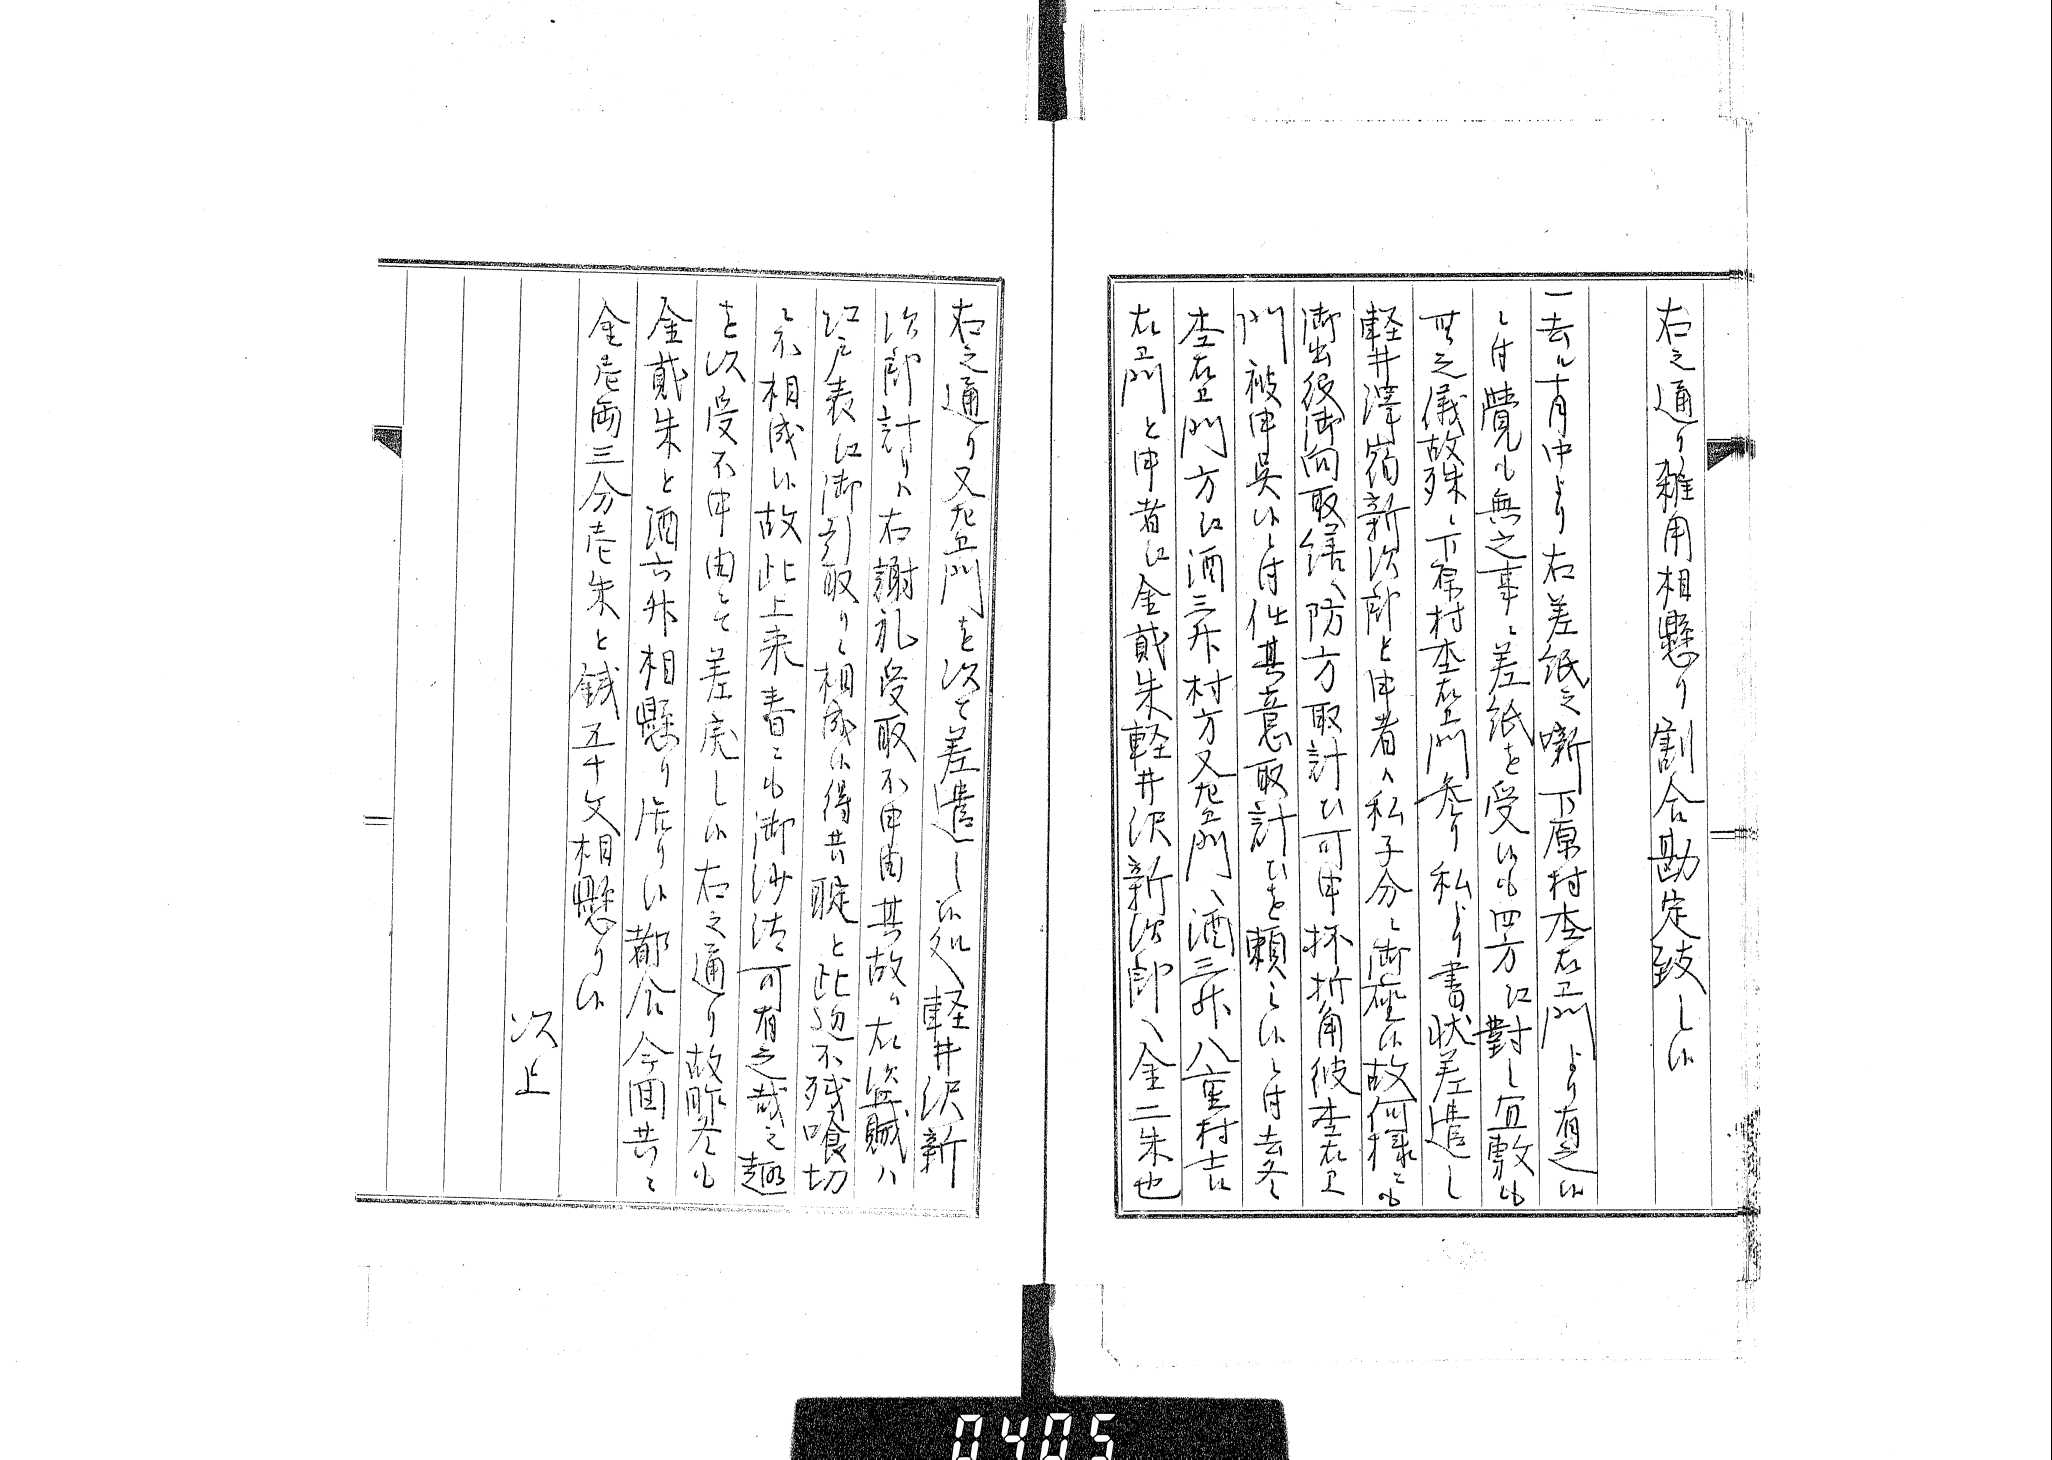 右之通り雑用相懸り割合勘定致し候
一去ル十月中より右差紙之噺下原村杢右エ門より有之候
ニ付覚も無之事ニ差紙を受候も四方江對し宜敷も
無之儀故殊ニ下県村杢右エ門参り私より書状差遣し
軽井澤宿新次郎と申者ハ私子分ニ御座候故何様ニも
御出役御向取繕ヘ防方取計ひ可申抔折角彼杢右エ
門被申呉候ニ付任其意取計ひを頼ミ候ニ付去冬
杢右エ門方江酒三升村方又左エ門ヘ酒三升八重村吉
右エ門と申者江金貮朱軽井沢新次郎ヘ金二朱也
右之通り又左エ門を以て差遣し候処軽井沢新
次郎計りハ右謝礼受取不申由其故ハ右盗賊ハ
江戸表江御引取りニ相成候得共聢と此辺不残喰切
ニ不相成候故此上来春ニも御沙汰可有之哉之趣
を以受不申由ニて差戻し候右之通り故昨冬も
金貮朱と酒六升相懸り居り候都合今回共ニ
金壱両三分壱朱と銭五十文相懸り候
以上
0405